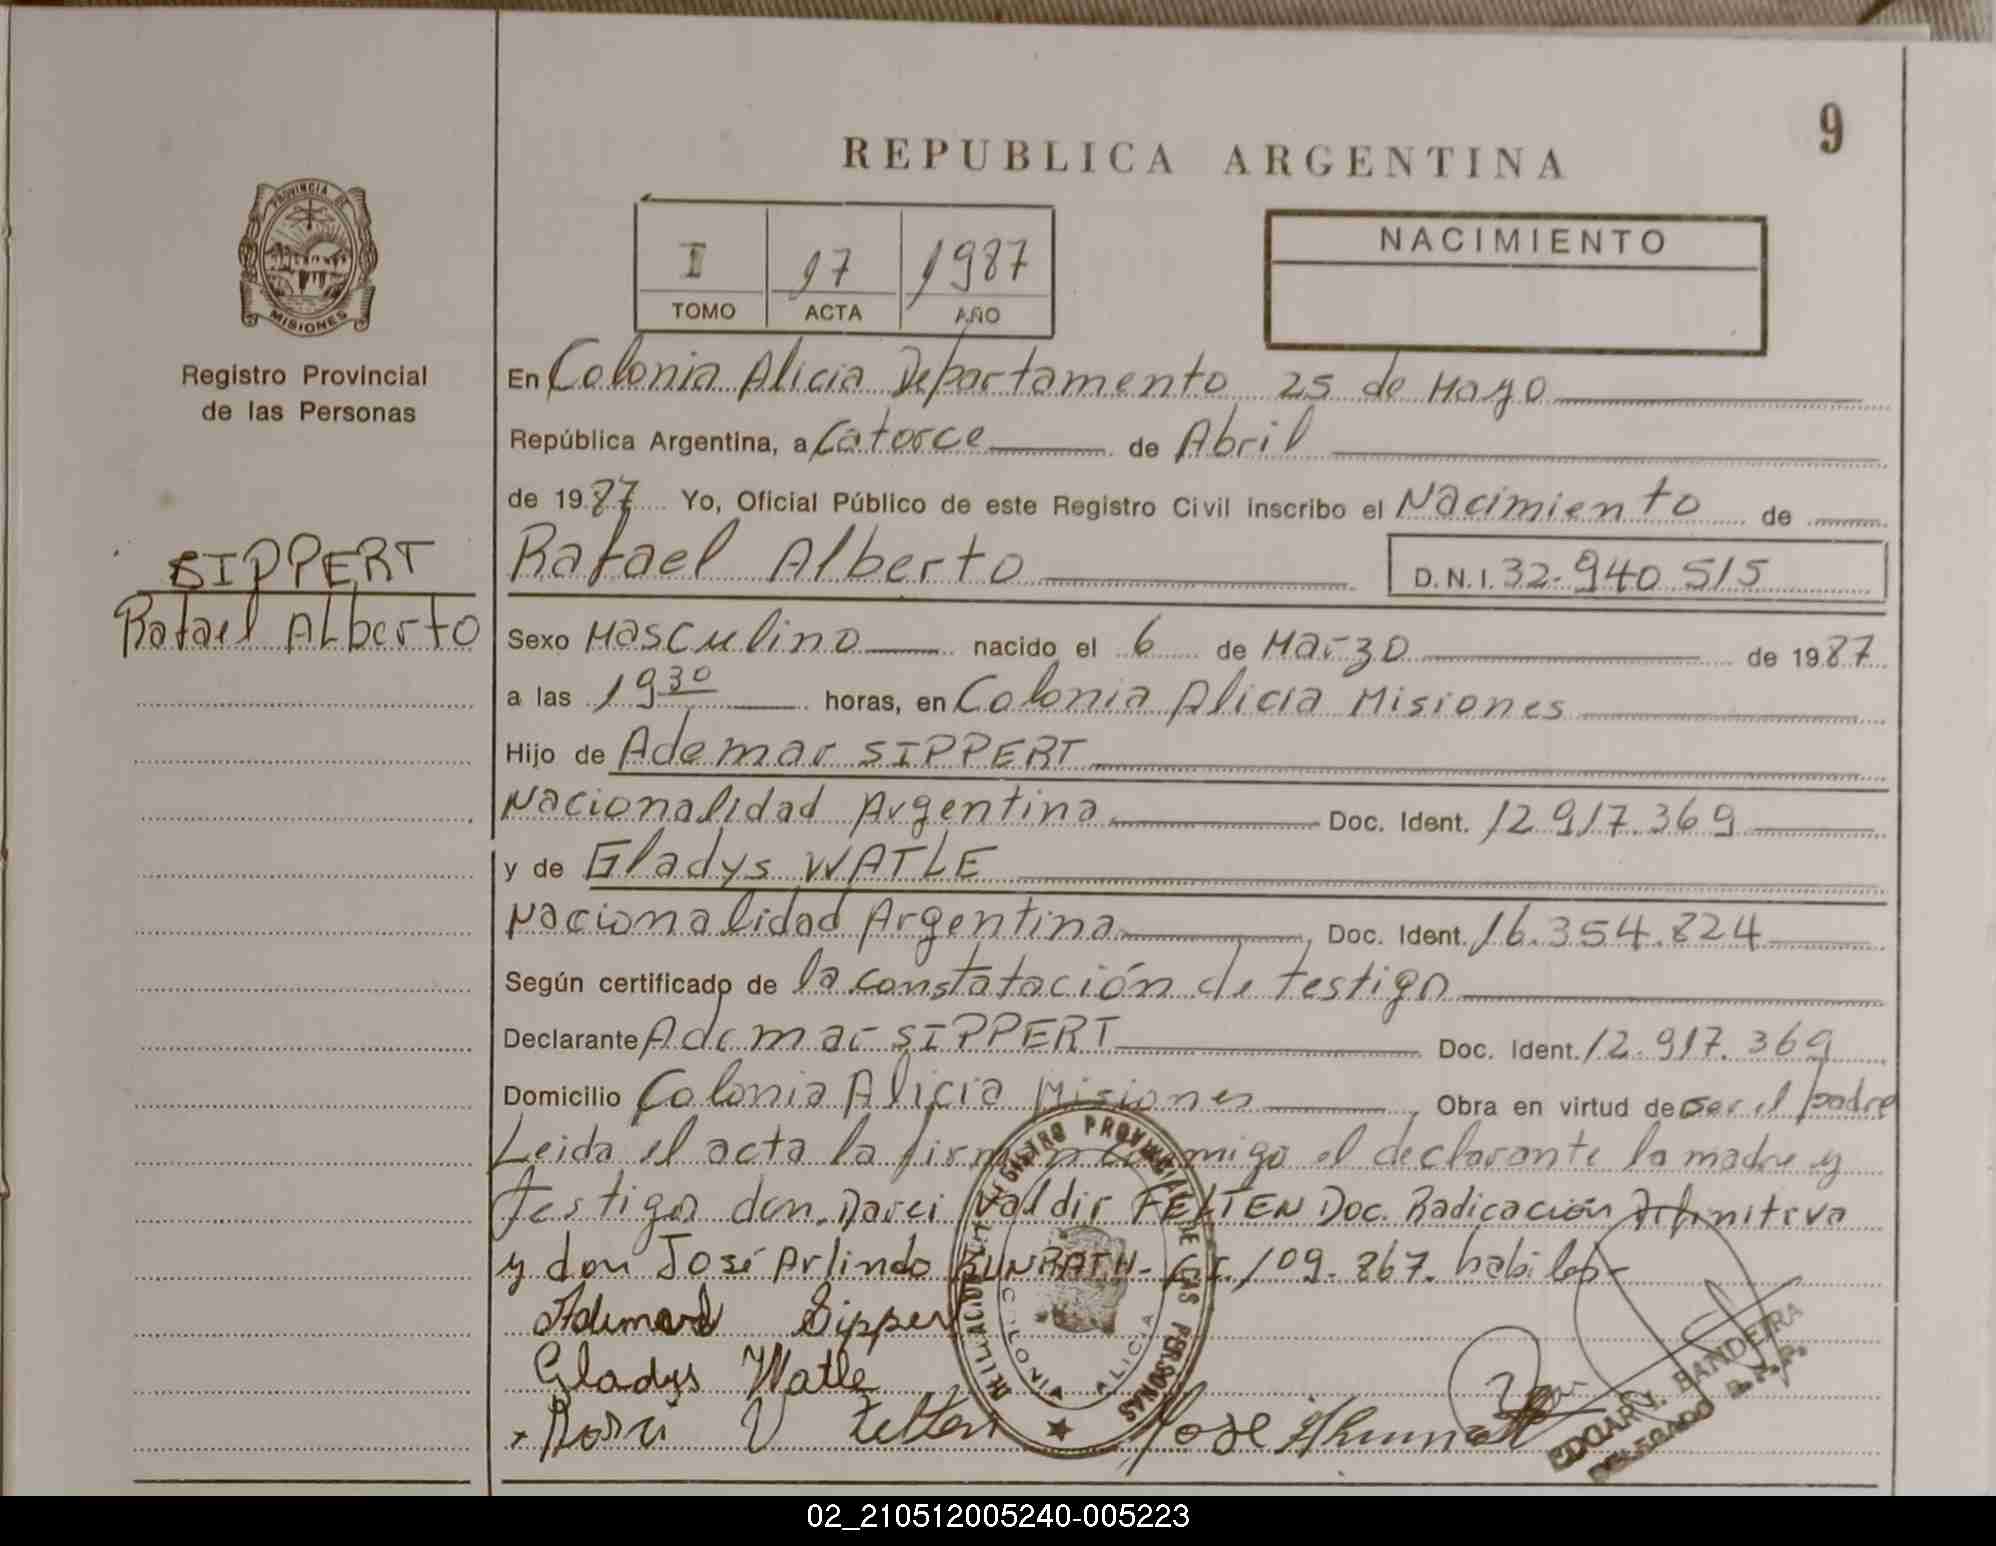 9
REPUBLICA ARGENTINA
I 17 1987
TOMO ACTA AÑO
NACIMIENTO
PROVINCIA DE
MISIONES
Registro Provincial
de las Personas
SIPPERT
Rafael Alberto
En Colonia Alicia Departamento 25 de Mayo
República Argentina, a Catorce de Abril
de 1987 Yo, Oficial Público de este Registro Civil inscribo el Nacimiento de
Rafael Alberto D.N.I. 32.940.515
Sexo Masculino nacido el 6 de Marzo de 1987
a las 19 30 horas, en Colonia Alicia Misiones
Hijo de Ademar SIPPERT
Nacionalidad Argentina Doc. Ident. 12.917.369
y de Gladys WATLE
Nacionalidad Argentina Doc. Ident. 16.354.824
Según certificado de la constatación de testigo
Declarante Ademar SIPPERT Doc. Ident. 12.917.369
Domicilio Colonia Alicia Misiones, Obra en virtud de ser el padre
Leida el acta la firman conmigo el declarante la madre y
testigos don Darci Valdir FELTEN Doc. Radicación Definitiva
y don José Arlindo KUNRATH - C.I. 109.867. habiles-
Ademar Sippert
Gladys Watle
V Felten José
REGISTRO PROVINCIAL DE LAS PERSONAS
COLONIA ALICIA
EDGAR V. BANDEIRA
DELEGADO R.P.P.
02_210512005240-005223